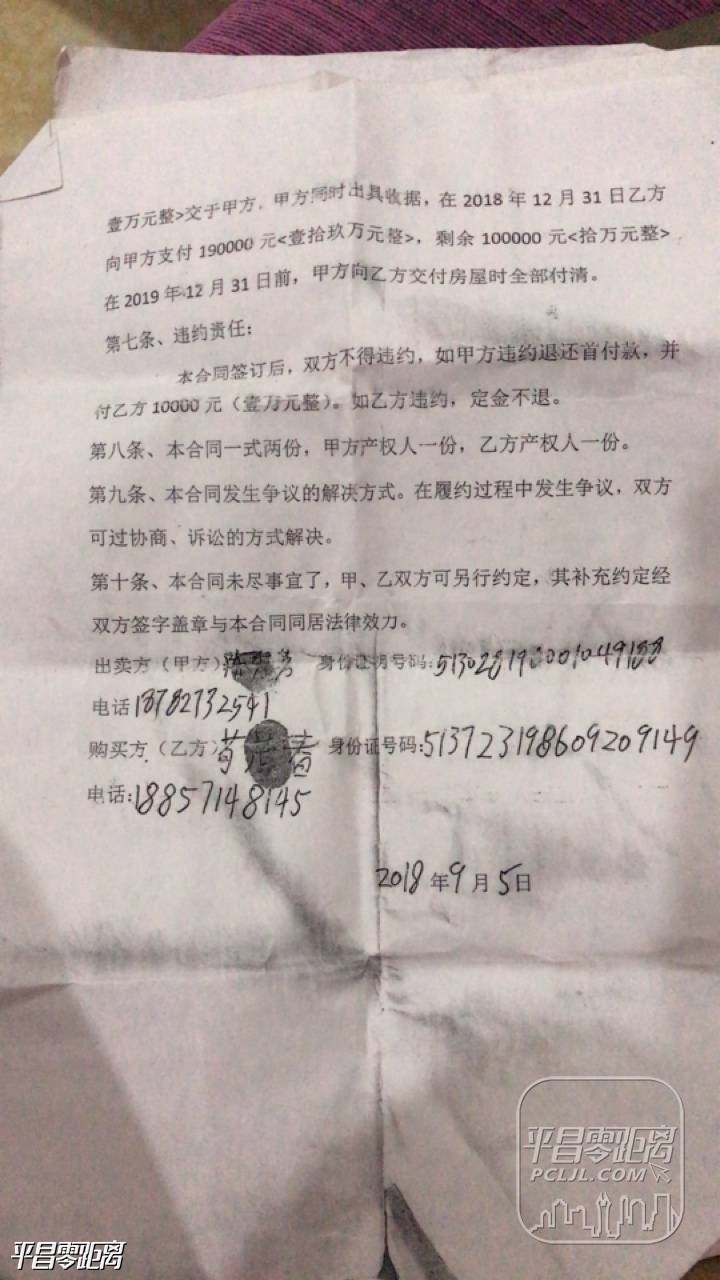 壹万元整>交于甲方，甲方同时出具收据，在 2018 年 12 月 31 日乙方
向甲方支付 190000 元<壹拾玖万元整>，剩余 100000 元<拾万元整>
在 2019 年 12 月 31 日前，甲方向乙方交付房屋时全部付清。
第七条、违约责任：
本合同签订后，双方不得违约，如甲方违约退还首付款，并
付乙方 10000 元（壹万元整）。如乙方违约，定金不退。
第八条、本合同一式两份，甲方产权人一份，乙方产权人一份。
第九条、本合同发生争议的解决方式。在履约过程中发生争议，双方
可过协商、诉讼的方式解决。
第十条、本合同未尽事宜了，甲、乙双方可另行约定，其补充约定经
双方签字盖章与本合同同居法律效力。
出卖方（甲方） 身份证明号码:
电话 18782732541
购买方（乙方） 身份证号码:513723198609209149
电话:18857148145
2018 年 9 月 5 日
平昌零距离
PCLJL.COM
平昌零距离